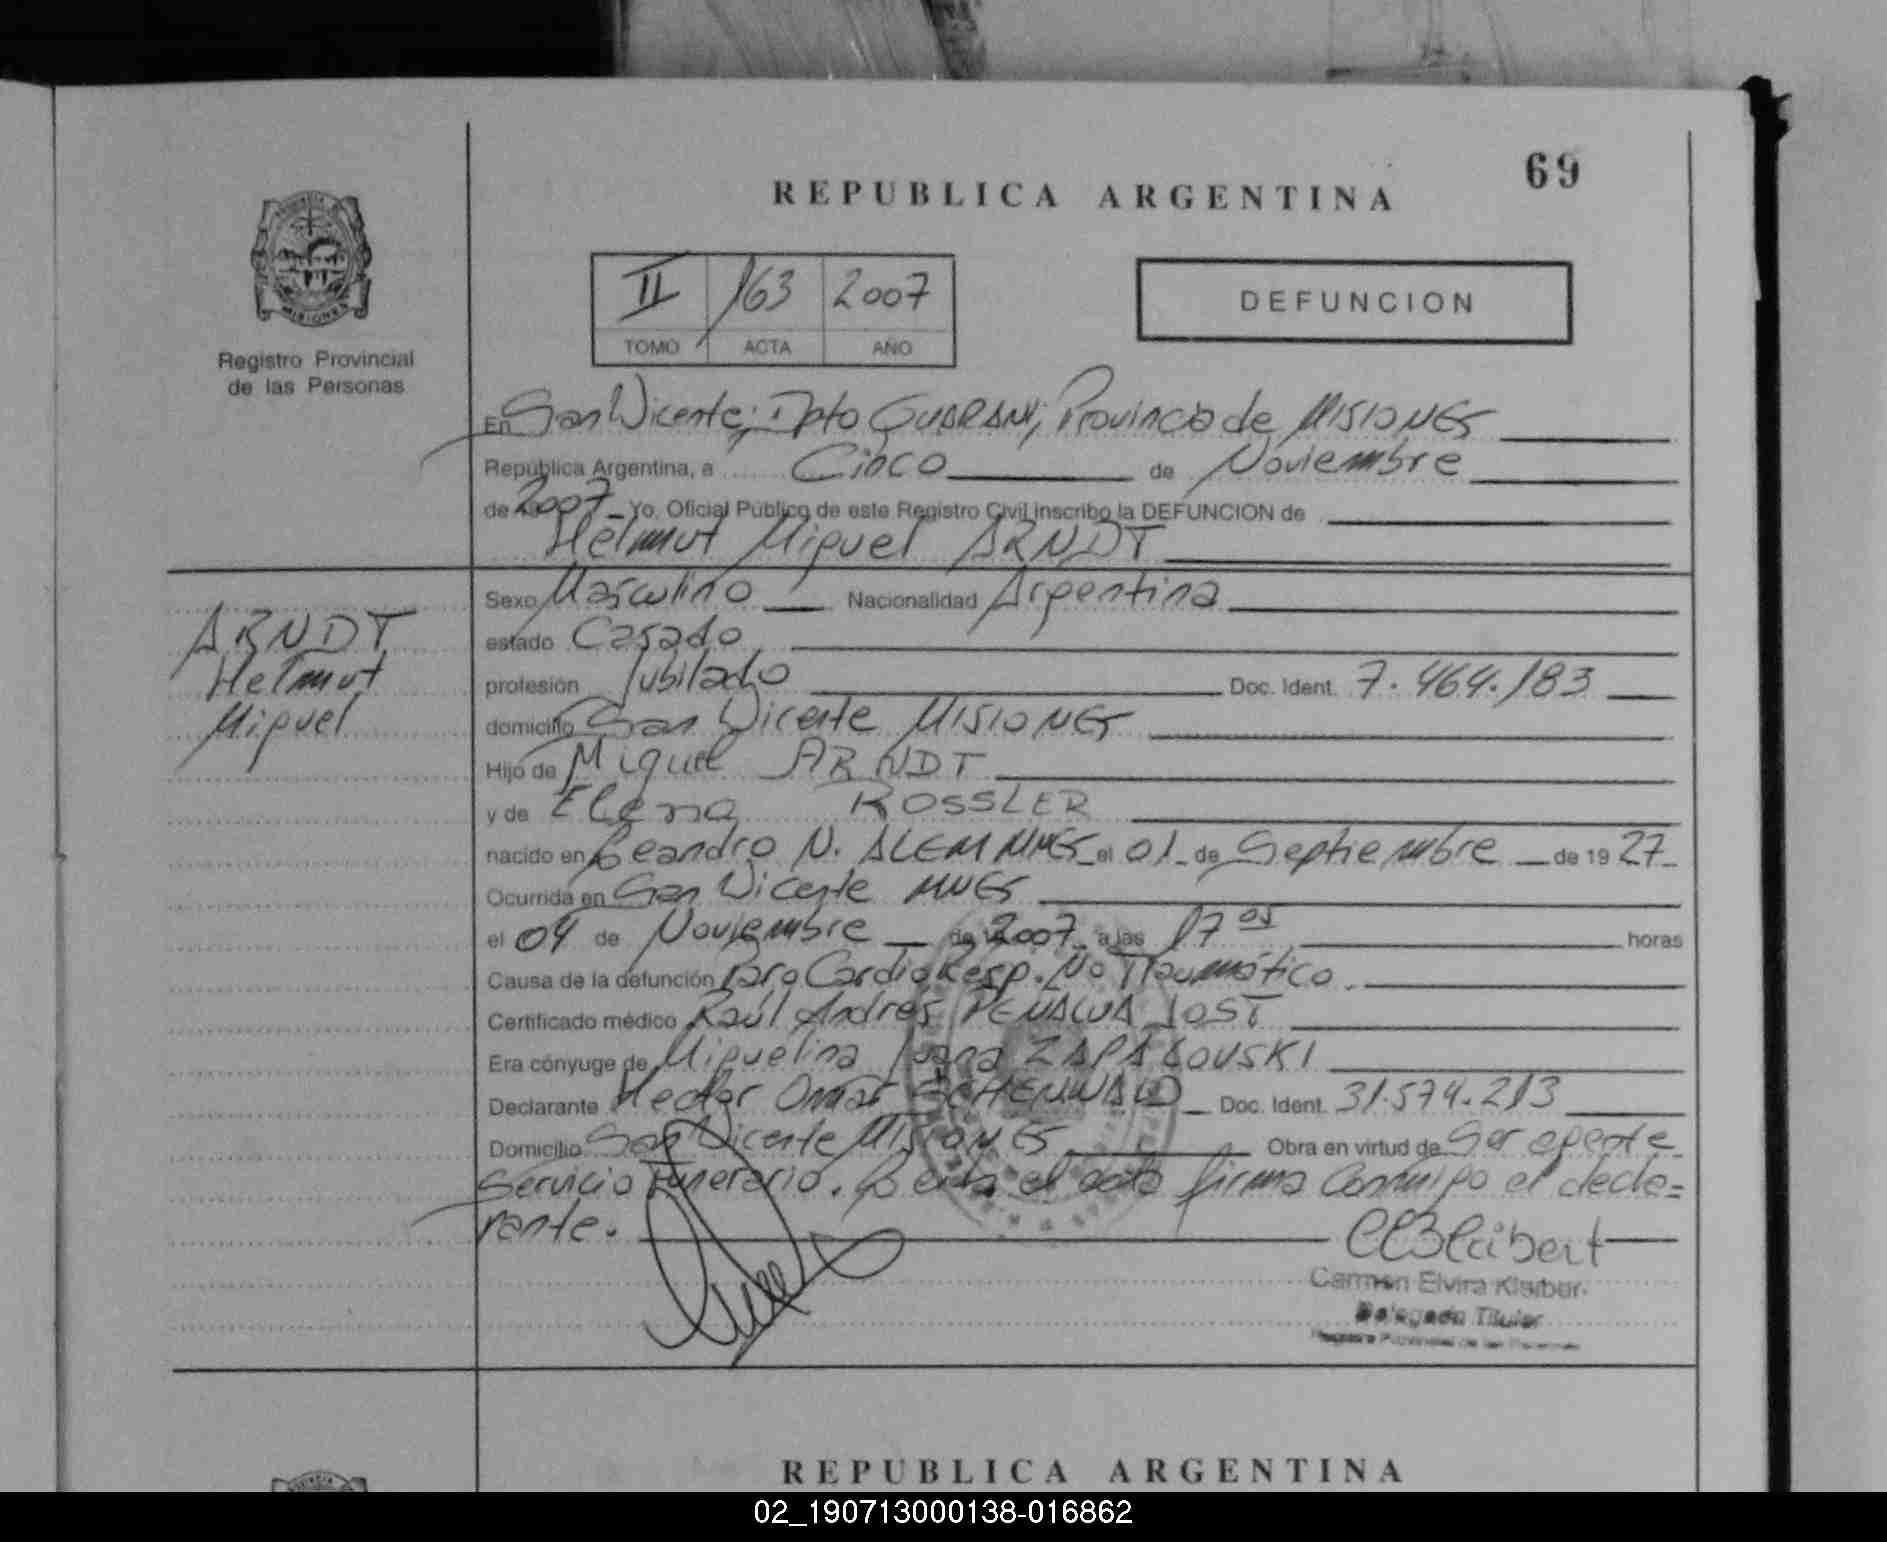 69
REPUBLICA ARGENTINA
II 163 2007
TOMO ACTA AÑO
DEFUNCION
Registro Provincial
de las Personas
En San Vicente, Dpto GUARANI, Provincia de MISIONES
República Argentina, a Cinco de Noviembre
de 2007 Yo, Oficial Público de este Registro Civil inscribo la DEFUNCION de
Helmut Miguel ARNDT
ARNDT
Helmut
Miguel
Sexo Masculino Nacionalidad Argentina
estado Casado
profesión Jubilado Doc. Ident. 7.464.183
domicilio San Vicente MISIONES
Hijo de Miguel ARNDT
y de Elena ROSSLER
nacido en Leandro N. ALEM MNES el 01 de Septiembre de 1927
Ocurrida en San Vicente MNES
el 04 de Noviembre de 2007 a las 17 05 horas
Causa de la defunción Paro Cardio Resp. No Traumático.
Certificado médico Raúl Andres PENALVA JOST
Era cónyuge de Miguelina Juana
Declarante Hector Omar Doc. Ident. 31.574.213
Domicilio San Vicente MISIONES Obra en virtud de Ser agente
Servicio Funerario. Leida el acta firma Conmigo el decla=
rante.
Carmen Elvira Kleiber
Delegada Titular
Registro Provincial de las Personas
REPUBLICA ARGENTINA
02_190713000138-016862